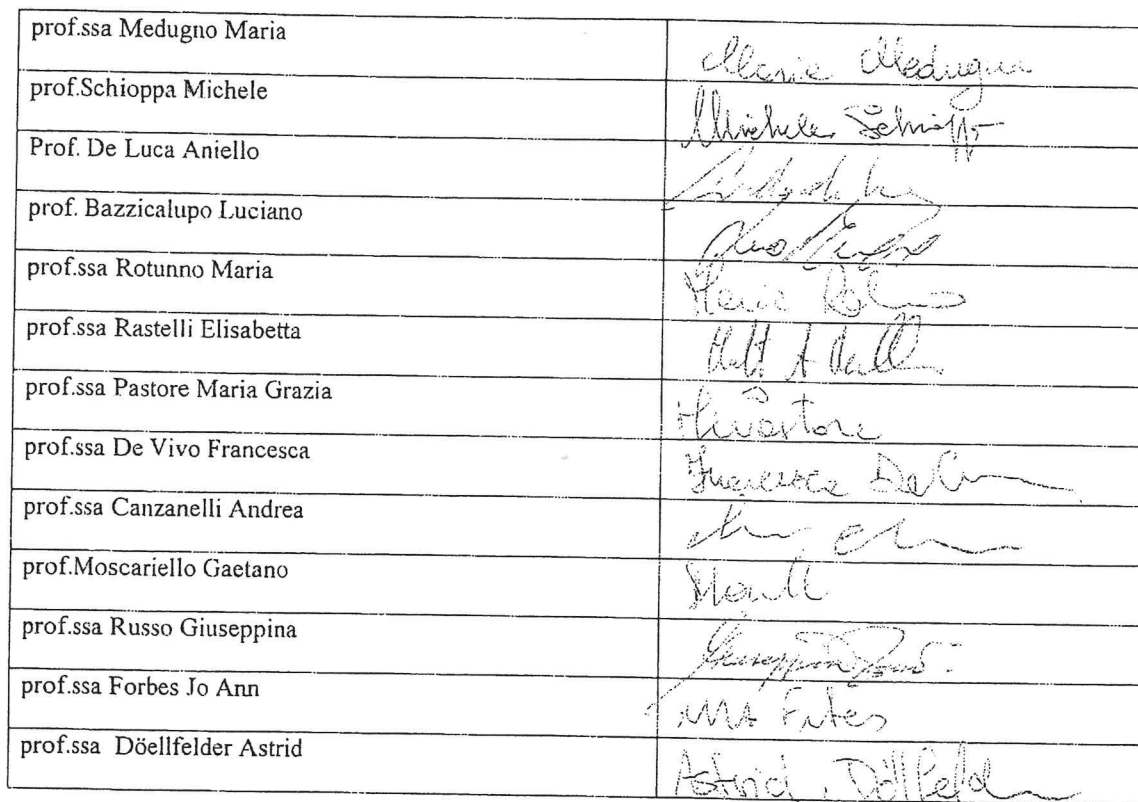 prof.ssa Medugno Maria
Maria Medugno
prof.Schioppa Michele
Michele Schioppa
Prof. De Luca Aniello
prof. Bazzicalupo Luciano
prof.ssa Rotunno Maria
Maria
prof.ssa Rastelli Elisabetta
prof.ssa Pastore Maria Grazia
prof.ssa De Vivo Francesca
Francesca De
prof.ssa Canzanelli Andrea
prof.Moscariello Gaetano
prof.ssa Russo Giuseppina
Giuseppina Russo
prof.ssa Forbes Jo Ann
prof.ssa Döellfelder Astrid
Astrid Döllfeld